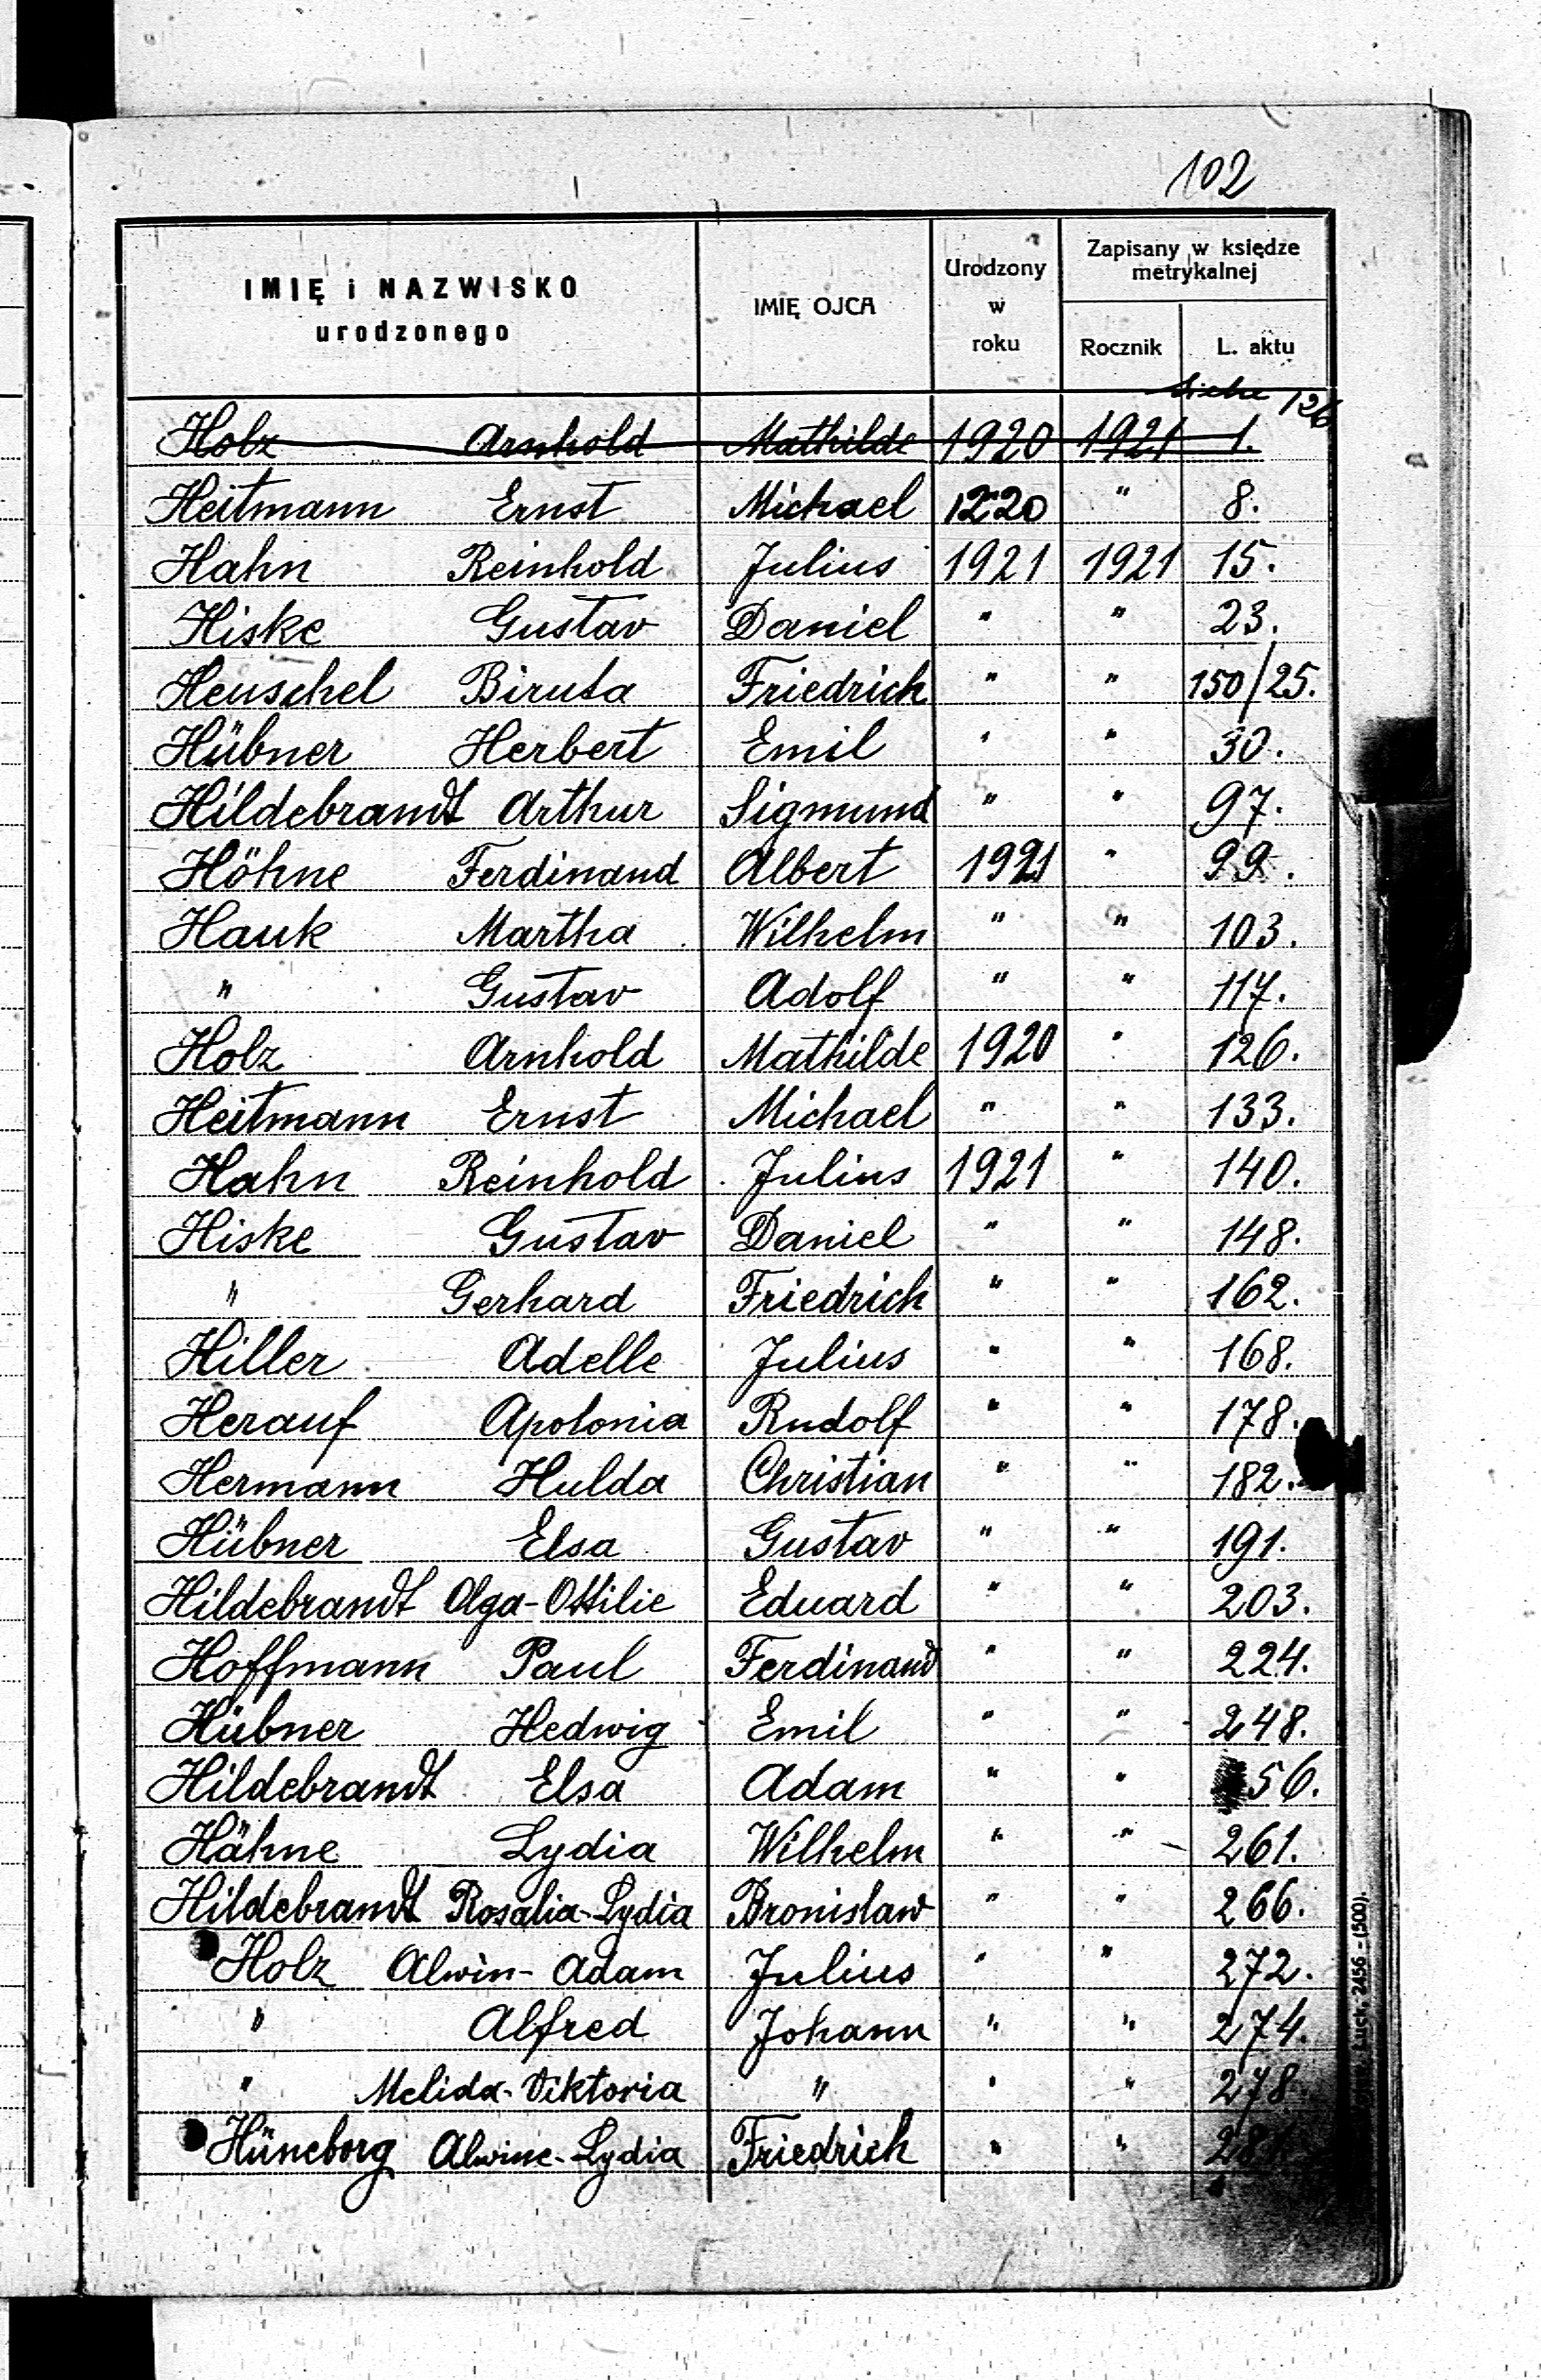 102
IMIĘ i NAZWISKO
urodzonego
IMIĘ OJCA
Urodzony
w
roku
Zapisany w księdze
metrykalnej
Rocznik
L. aktu
siehe 126
Holz Arnhold Mathilde 1920 1921 1.
Heitmann Ernst Michael 1220 " 8.
Hahn Reinhold Julius 1921 1921 15.
Hiske Gustav Daniel " " 23.
Heuschel Biruta Friedrich " " 150/25.
Hübner Herbert Emil " " 30.
Hildebrandt Arthur Sigmund " " 97.
Höhne Ferdinand Albert 1921 " 99.
Hauk Martha Wilhelm " " 103.
" Gustav Adolf " " 117.
Holz Arnhold Mathilde 1920 " 126.
Heitmann Ernst Michael " " 133.
Hahn Reinhold Julius 1921 " 140.
Hiske Gustav Daniel " " 148.
" Gerhard Friedrich " " 162.
Hiller Adelle Julius " " 168.
Herauf Apolonia Rudolf " " 178.
Hermann Hulda Christian " " 182.
Hübner Elsa Gustav " " 191.
Hildebrandt Olga-Ottilie Eduard " " 203.
Hoffmann Paul Ferdinand " " 224.
Hübner Hedwig Emil " " 248.
Hildebrandt Elsa Adam " " 56.
Hähne Lydia Wilhelm " " 261.
Hildebrandt Rosalia-Lydia Bronislaw " " 266.
Holz Alwin-Adam Julius " " 272.
" Alfred Johann " " 274.
" Melida-Viktoria " " " 278.
Hüneborg Alwine-Lydia Friedrich " "
Łuck, 2456 - (500).